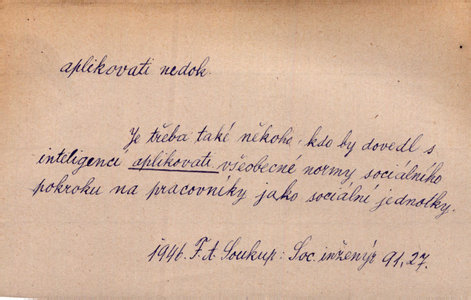 aplikovati nedok.
Je třeba také někoho, kdo by dovedl s
inteligencí aplikovati všeobecné normy sociálního
pokroku na pracovníky jako sociální jednotky.
1946. F. A. Soukup: Soc. inženýr 91, 27.